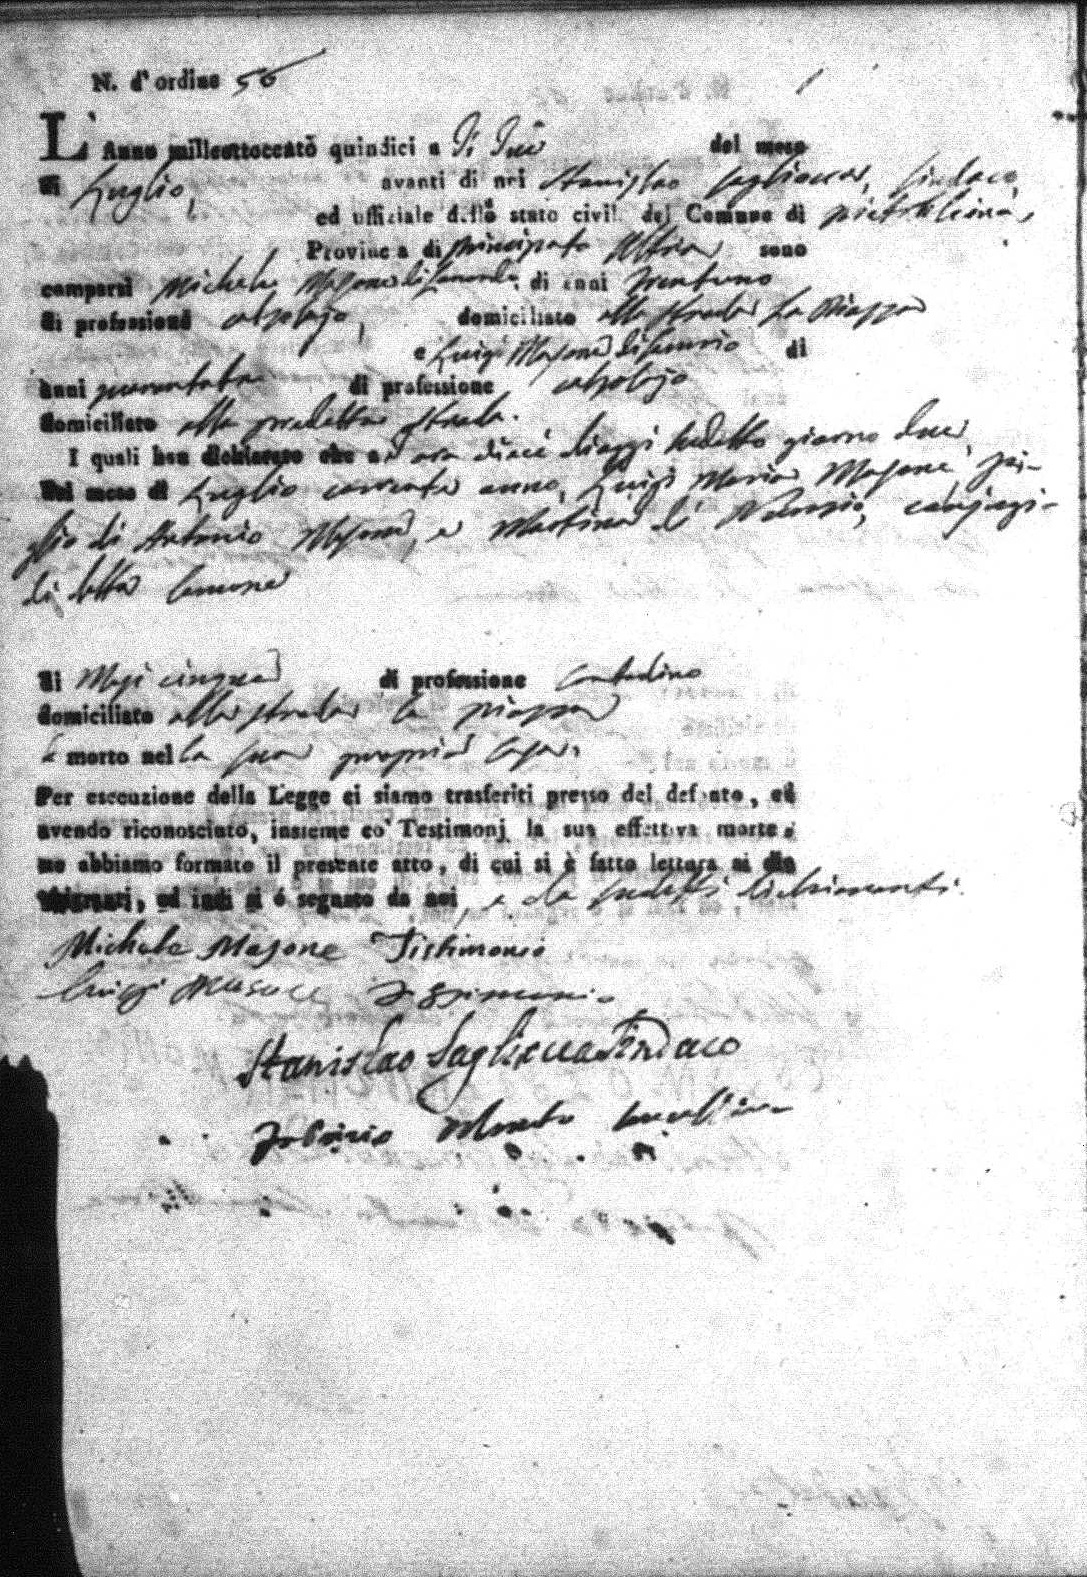 N. d'ordine 56
L'Anno milleottoccentò quindici a dì due del mese
di Luglio, avanti di noi Stanislao Sagliocca, Sindaco,
ed ufficiale dello stato civil. del Comune di pietralcina,
Provincia di principato Ultra sono
comparsi Michele Masone di di anni trentuno
di professione domiciliato alla strada La Piazza
e Luigi Masone di
anni di professione
domiciliato alla predetta strada.
I quali han dichiarato che a ora dieci d'oggi sudetto giorno due
del mese di Luglio corrente anno, Luigi Maria Masone, fi-
glio di Antonio Masone, e Martina di conjugi
di detta Comune
di Mesi cinque di professione Contadino
domiciliato alla strada la piazza
è morto nella sua propria casa.
Per esecuzione della Legge ci siamo trasferiti presso del defunto, ed
avendo riconosciuto, insieme co' Testimonj la sua effettiva morte,
ne abbiamo formato il presente atto, di cui si è fatto lettura ai dichiaranti, ed indi si è segnato da noi, e da sudetti dichiaranti.
Michele Masone Tistimonio
Luiggi Masone
Stanislao Sagliocca Sindaco